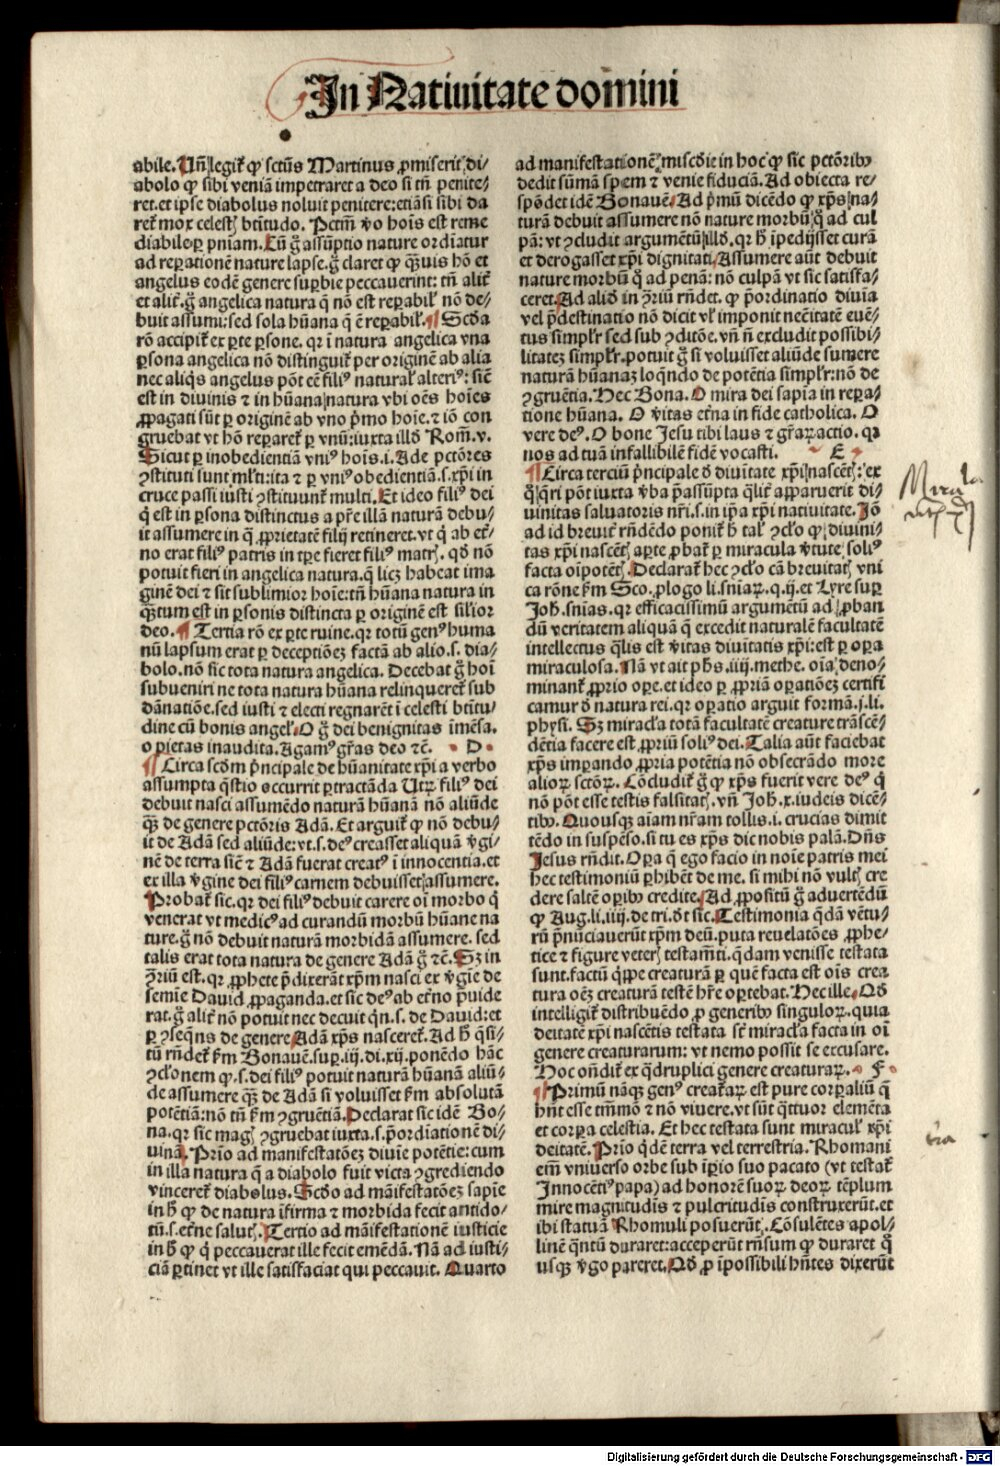 In Natiuitate domini
abile. Uñ legit᷑ ꝙ sctũs Martinus ꝓmiserit di/
abolo ꝙ sibi veniã impetraret a deo si tñ penite/
ret. et ipse diabolus noluit penitere: etiã si sibi da
ret᷑ mox celestꝭ btĩtudo. Pctm̃ ꝟo hoĩs est reme
diabile ꝑ pniam. Cũ g̊ assũptio nature ordĩatur
ad reꝑationẽ nature lapse. g̊ claret ꝙ ꝙ̃uis hõ et
angelus eodẽ genere suꝑbie peccauerint: tñ alit᷑
et alit᷑. g̊ angelica natura q̃ nõ est reꝑabil᷑ nõ de/
buit assumi: sed sola hũana q̃ ẽ reꝑabil᷑. ¶ Scd̃a
rõ accipit᷑ ex ꝑte ꝑsone. qr ĩ natura angelica vna
ꝑsona angelica nõ distinguit᷑ per originẽ ab alia
nec aliq̃s angelus põt eẽ filiꝰ natural᷑ alteriꝰ: sicẽ
est in diuinis ⁊ in hũana natura vbi oẽs hoĩes
ꝓpagati sũt ꝑ originẽ ab vno p̃mo hoĩe. ⁊ iõ con
gruebat vt hõ reꝑaret᷑ ꝑ vnũ: iuxta illd̃ Rom̃. v.
Sicut ꝑ inobedientiã vniꝰ hoĩs. i. Ade pctõres
ꝯstituti sunt ml̃ti: ita ⁊ ꝑ vniꝰ obedientiã. s. xp̃i in
cruce passi iusti ꝯstituunt᷑ multi. Et ideo filiꝰ dei
q̃ est in ꝑsona distinctus a pr̃e illã naturã debu/
it assumere in q̃ ꝓprietatẽ filij retineret. vt q̃ ab et̃/
no erat filiꝰ patris in tp̃e fieret filiꝰ matrꝭ. qd̃ nõ
potuit fieri in angelica natura. q̃ licꝫ habeat ima
ginẽ dei ⁊ sit sublimior hoĩe: tñ hũana natura in
ꝙ̃tum est in ꝑsonis distincta ꝑ originẽ est sil̃ior
deo. ¶ Tertia rõ ex ꝑte ruine. qr totũ genꝰ huma
nũ lapsum erat ꝑ deceptiõeꝫ factã ab alio. s. dia/
bolo. nõ sic tota natura angelica. Decebat g̊ hoĩ
subueniri ne tota natura hũana relinqueret᷑ sub
dãnatiõe. sed iusti ⁊ electi regnarẽt ĩ celesti btĩtu/
dine cũ bonis angel᷑. O g̊ dei benignitas ĩmẽsa.
o pietas inaudita. Agamꝰ gr̃as deo ⁊c̃. D
¶ Circa scd̃m p̃ncipale de hũanitate xp̃i a verbo
assumpta q̃stio occurrit ꝑtractãda Utrꝵ filiꝰ dei
debuit nasci assumẽdo naturã hũanã nõ aliũde
ꝙ̃ de genere pctõris Adã. Et arguit᷑ ꝙ nõ debu/
it de Adã sed aliũde: vt. s. deꝰ creasset aliquã ꝟgi/
nẽ de terra sicẽ ⁊ Adã fuerat creatꝰ ĩ innocentia. et
ex illa ꝟgine dei filiꝰ carnem debuisset assumere.
Probat᷑ sic. qr dei filiꝰ debuit carere oĩ morbo q̃
venerat vt medicꝰ ad curandũ morbũ hũane na
ture. g̊ nõ debuit naturã morbidã assumere. sed
talis erat tota natura de genere Adã g̊ ⁊c̃. Sꝫ in
ꝯrriũ est. qr ꝓphete p̃dixerãt xp̃m nasci ex ꝟgĩe de
semĩe Dauid ꝓpaganda. et sic deꝰ ab et̃no p̃uide
rat. g̊ alit᷑ nõ potuit nec decuit q̃n. s. de Dauid: et
ꝑ ꝯseq̃ns de genere Adã xp̃s nasceret᷑. Ad h̃ q̃si/
tũ rñdet᷑ ẜm Bonauẽ. suꝑ. iij. di. xij. ponẽdo hãc
ꝯclõnem ꝙ. s. dei filiꝰ potuit naturã hũanã aliũ/
de assumere ꝙ̃ de Adã si voluisset ẜm absolutã
potẽtiã: nõ tñ ẜm ꝯgruẽtiã. Declarat sic idẽ Bo/
na. qr sic magꝭ ꝯgruebat iuxta. s. p̃ordĩationẽ di/
uinã. Prĩo ad manifestatõeꝫ diuĩe potẽtie: cum
in illa natura q̃ a diabolo fuit victa ꝯgrediendo
vinceret᷑ diabolus. Scd̃o ad mãifestatõeꝫ sapĩe
in h̃ ꝙ de natura ĩfirma ⁊ morbida fecit antido/
tũ. s. et̃ne salutꝭ. Tertio ad mãifestationẽ iusticie
in h̃ ꝙ q̃ peccauerat ille fecit emẽdã. Nã ad iusti/
ciã ꝑtinet vt ille satisfaciat qui peccauit. Quarto
ad manifestationẽ miscd̃ie in hoc ꝙ sic pctõribꝰ
dedit sũmã spem ⁊ venie fiduciã. Ad obiecta re/
spõdet idẽ Bonauẽ. Ad p̃mũ dicẽdo ꝙ xp̃s na/
turã debuit assumere nõ nature morbũ q̃ ad cul
pã: vt ꝯcludit argumẽtũ illd̃. qr h̃ ĩpedijsset curã
et derogasset xp̃i dignitati. Assumere aũt debuit
nature morbũ q̃ ad penã: nõ culpã vt sic satisfa/
ceret. Ad aliõ in ꝯrriũ rñdet. ꝙ p̃ordinatio diuĩa
vel p̃destinatio nõ dicit vl᷑ imponit necẽitatẽ euẽ/
tus simpl᷑r sed sub ꝯditõe. vñ ñ excludit possibi/
litateꝫ simpl᷑r. potuit g̊ si voluisset aliũde sumere
naturã hũanaꝫ loq̃ndo de potẽtia simpl᷑r: nõ de
ꝯgruẽtia. Hec Bona. O mira dei sapĩa in reꝑa/
tione hũana. O ꝟitas et̃na in fide catholica. O
vere deꝰ. O bone Jesu tibi laus ⁊ gr̃aꝵ actio. qꝛ
nos ad tuã infallibilẽ fidẽ vocasti. E
¶ Circa terciũ p̃ncipale d̃ diuĩtate xp̃i nascẽtꝭ: ex
q̃ q̃ri põt iuxta ꝟba p̃assũpta q̃lit᷑ apparuerit di/
uinitas saluatoris nr̃i. s. in ip̃a xp̃i natiuitate. Jõ
ad id breuit᷑ rñdẽdo ponit᷑ h̃ tal᷑ ꝯclõ ꝙ diuini/
tas xp̃i nascẽtꝭ aꝑte ꝓbat᷑ ꝑ miracula ꝟtute soliꝰ
facta oĩpotẽtꝭ. Declarat᷑ hec ꝯclõ cã breuitatꝭ vni
ca rõne ẜm Sco. ꝓlogo li. sñiaꝵ. q. ij. et Lyre suꝑ
Joh̃. sñias. qr efficacissimũ argumẽtũ ad ꝓban
dũ veritatem aliquã q̃ excedit naturalẽ facultatẽ
intellectus q̃lis est ꝟitas diuĩtatis xp̃i: est ꝑ oꝑa
miraculosa. Nã vt ait ph̃s. iiij. methe. oĩa deno/
minant᷑ ꝓprio oꝑe. et ideo ꝑ ꝓpriã oꝑatiõeꝫ certifi
camur d̃ natura rei. qr oꝑatio arguit formã. j. li.
physi. Sꝫ miracl̃a totã facultatẽ creature trãscẽ/
dẽtia facere est ꝓpriũ soliꝰ dei. Talia aũt faciebat
xp̃s imꝑando ꝓpria potẽtia nõ obsecrãdo more
alioꝵ sctõꝵ. Cõcludit᷑ g̊ ꝙ xp̃s fuerit vere deꝰ q̃
nõ põt esse testis falsitatꝭ. vñ Joh̃. x. iudeis dicẽ/
tibꝰ. Quousqꝫ aĩam nr̃am tollis. i. crucias dimit
tẽdo in suspẽso. si tu es xp̃s dic nobis palã. Dñs
Jesus rñdit. Oꝑa q̃ ego facio in noĩe patris mei
hec testimoniũ ꝑhibẽt de me. si mihi nõ vultꝭ cre
dere saltẽ oꝑibꝰ credite. Ad ꝓpositũ g̊ aduertẽdũ
ꝙ Aug. li. iiij. de tri. d̃t sic. Testimonia q̃dã vẽtu/
rũ p̃nũciauerũt xp̃m deũ. puta reuelatões ꝓphe/
tice ⁊ figure veterꝭ testam̃ti. q̃dam venisse testata
sunt. factũ q̃ppe creaturã ꝑ quẽ facta est oĩs crea
tura oẽꝫ creaturã testẽ hr̃e oꝑtebat. Hec ille. Qd̃
intelligit᷑ distribuẽdo ꝓ generibꝰ singuloꝵ. quia
deitatẽ xp̃i nascẽtis testata st̃ miracl̃a facta in oĩ
genere creaturarum: vt nemo possit se excusare.
Hoc oñdit᷑ ex q̃druplici genere creaturaꝵ. F
¶ Primũ nãqꝫ genꝰ creat᷑aꝵ est pure corꝑaliũ q̃
hñt esse tm̃mõ ⁊ nõ viuere. vt sũt q̃ttuor elemẽta
et corꝑa celestia. Et hec testata sunt miracul᷑ xp̃i
deitatẽ. Prĩo q̃dẽ terra vel terrestria. Rhomani
em̃ vniuerso orbe sub ĩꝑio suo pacato (vt testat᷑
Innocẽtiꝰ papa) ad honorẽ suoꝵ deoꝵ tẽplum
mire magnitudĩs ⁊ pulcritudĩs construxerũt. et
ibi statuã Rhomuli posuerũt. Cõsulẽtes apol/
linẽ q̃ntũ duraret: acceperũt rñsum ꝙ duraret q̃
usqꝫ ꝟgo pareret. Qd̃ ꝓ ĩpossibili hñtes dixerũt
Digitalisierung gefördert durch die Deutsche Forschungsgemeinschaft - DFG